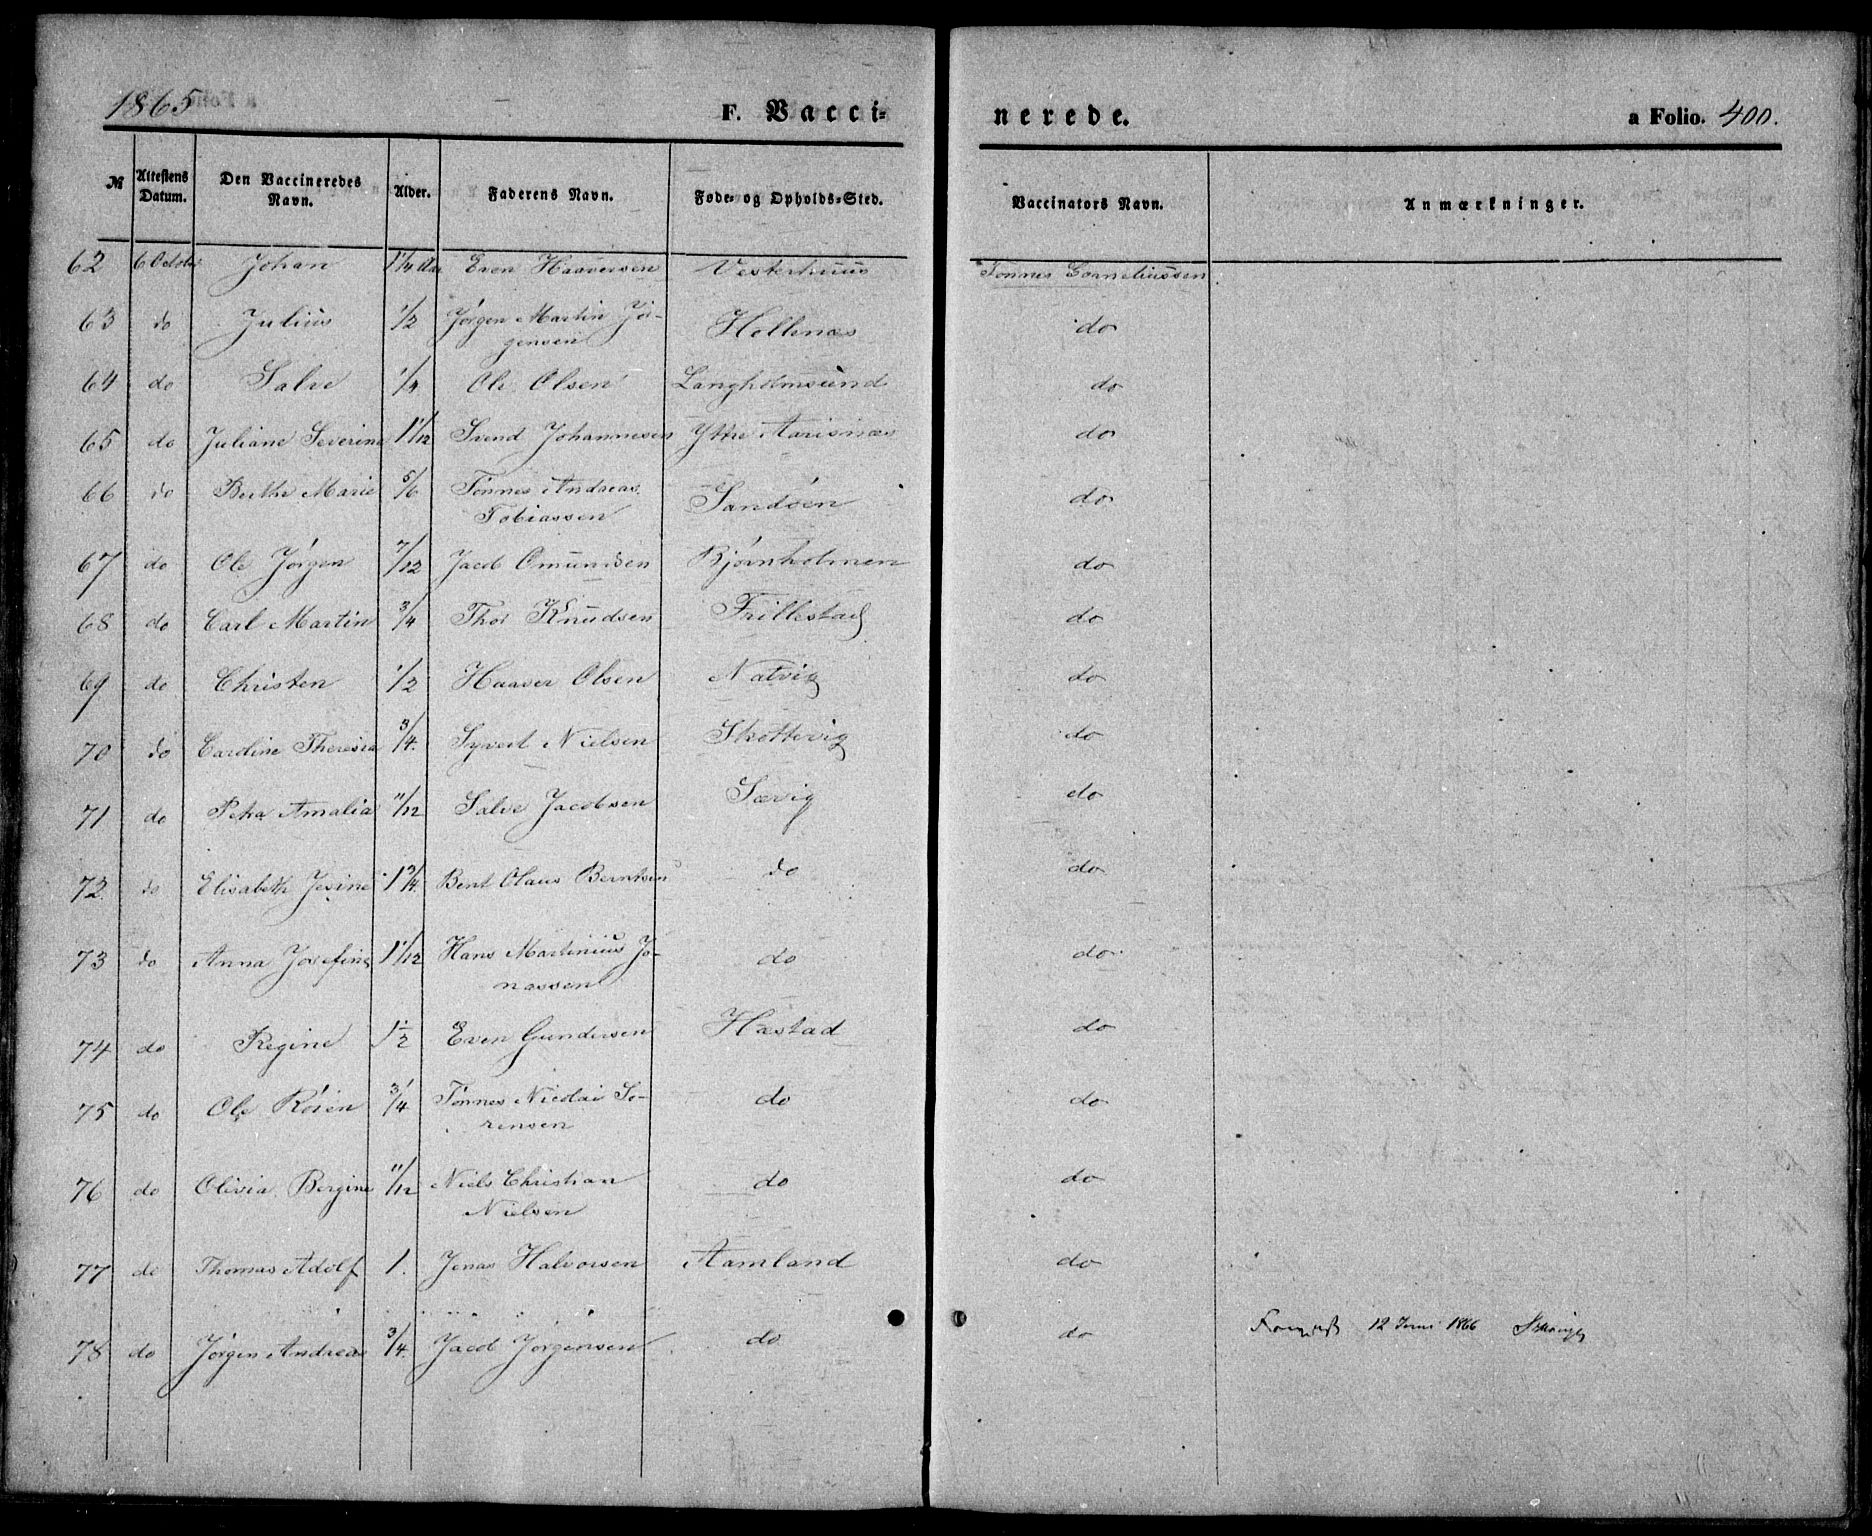 1865
F. Vaccinerede.
a Folio. 400.
№ | Attestens Datum. | Den Vaccineredes Navn. | Alder. | Faderens Navn. | Føde- og Opholds-Sted. | Vaccinators Navn. | Anmærkninger.
62 | 6 October | Johan | 1 1/4 Aar | Even Haaversen | Vesterhuus | Tønnes Corneliussen
63 | do | Julius | 1/2 | Jørgen Martin Jør-
gensen | Hellenæs | do
64 | do | Salve | 1/4 | Ole Olsen | Langholmsund | do
65 | do | Juliane Severine | 1 1/12 | Svend Johannesen | Yttre Aarisnæs | do
66 | do | Berthe Marie | 5/6 | Tønnes Andreas
Tobiassen | Sandøen | do
67 | do | Ole Jørgen | 7/12 | Jacob Omundsen | Bjørnholmen | do
68 | do | Carl Martin | 3/4 | Thor Knudsen | Frillestad | do
69 | do | Christen | 1/2 | Haaver Olsen | Natvig | do
70 | do | Caroline Theresia | 3/4. | Syvert Nielsen | Skottevig | do
71 | do | Petra Amalia | 11/12 | Salve Jacobsen | Sævig | do
72 | do | Elisabeth Jesine | 1 3/4. | Bent Olaus Berntsen | do | do
73 | do | Anna Josefine | 1 1/12 | Hans Martinius Jo-
nassen | do | do
74 | do | Regine | 1 1/2 | Even Gundersen | Hæstad | do
75 | do | Ole Röien | 3/4 | Tønnes Nicolai Sø-
rensen | do | do
76 | do | Olivia Bergine | 11/12 | Niels Christian
Nielsen | do | do
77 | do | Thomas Adolf | 1. | Jonas Halvorsen | Aamland | do
78 | do | Jørgen Andreas | 3/4. | Jacob Jørgensen | do | do | 12 Juni 1866